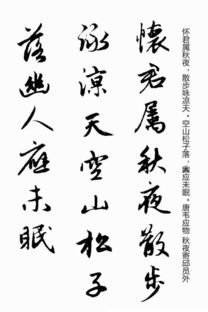 怀君属秋夜，散步咏凉天。空山松子落，幽人应未眠。唐韦应物 秋夜寄邱员外
懷君属秋夜散步
詠凉天空山松子
落幽人應未眠